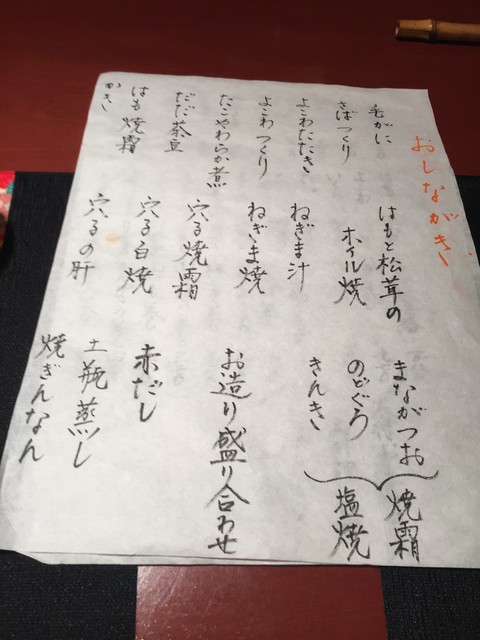 おしながき
毛がに
さばつくり
よこわたたき
よこわつくり
たこやわらか煮
だだ茶豆
はも焼霜
かき
はもと松茸の
ホイル焼
ねぎま汁
ねぎま焼
穴子焼霜
穴子白焼
穴子の肝
まながつお
のどぐろ
きんき
焼霜
塩焼
お造り盛り合わせ
赤だし
土瓶蒸し
焼ぎんなん